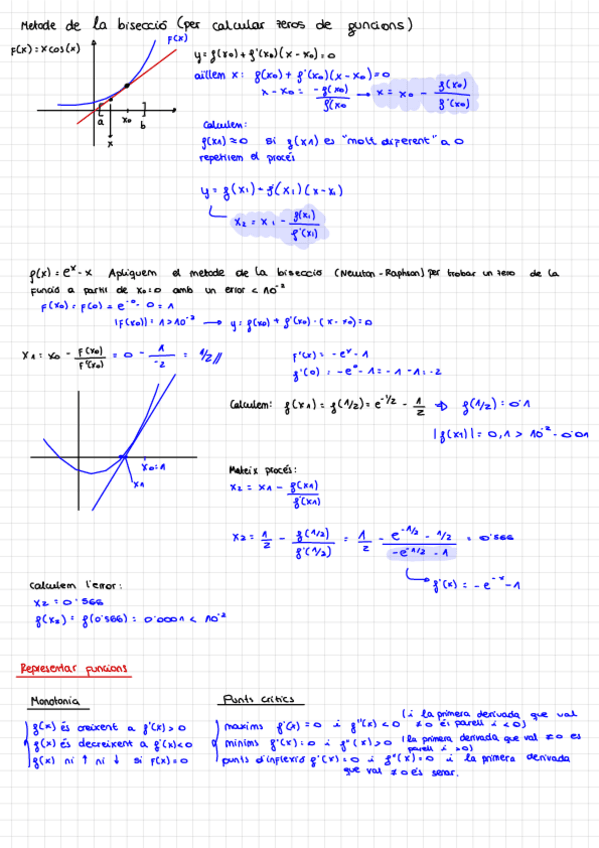 Metode de la bisecció (per calcular zeros de funcions)
F(x) = x cos(x)
F(x)
a
x₀
b
x
y = f(x₀) + f'(x₀)(x - x₀) = 0
aïllem x: f(x₀) + f'(x₀)(x - x₀) = 0
x - x₀ = -f(x₀)/f(x₀ → x = x₀ - f(x₀)/f'(x₀)
Calculem:
f(x₁) ≈ 0 si f(x₁) es "molt diferent" a 0
repetirem el procés
y = f(x₁) + f'(x₁)(x - x₁)
x₂ = x₁ - f(x₁)/f'(x₁)
f(x) = eˣ - x Apliquem el metode de la bisecció (Newton-Raphson) per trobar un zero de la
funció a partir de x₀ = 0 amb un error < 10⁻²
F(x₀) = F(0) = e⁻⁰ - 0 = 1
|F(x₀)| = 1 > 10⁻² → y = f(x₀) + f'(x₀)·(x - x₀) = 0
x₁ = x₀ - F(x₀)/F'(x₀) = 0 - 1/-2 = 1/2//
f'(x) = -eˣ - 1
f'(0) = -e⁰ - 1 = -1 - 1 = -2
x₀ = 1
x₁
Calculem: f(x₁) = f(1/2) = e^(-1/2) - 1/2 ⇒ f(1/2) = 0'1
|f(x₁)| = 0,1 > 10⁻² = 0'01
Mateix procés:
x₂ = x₁ - f(x₁)/f'(x₁)
x₂ = 1/2 - f(1/2)/f'(1/2) = 1/2 - (e^(-1/2) - 1/2)/(-e^(-1/2) - 1) = 0'566
f'(x) = -e⁻ˣ - 1
Calculem l'error:
x₂ = 0'566
f(x₂) = f(0'566) = 0'0001 < 10⁻²
Representar funcions
Monotonia
f(x) és creixent a f'(x) > 0
f(x) és decreixent a f'(x) < 0
f(x) ni ↑ ni ↓ si F(x) = 0
Punts crítics
maxims f'(x) = 0 i f''(x) < 0 (i la primera derivada que val ≠ 0 és parell i < 0)
minims f'(x) = 0 i f''(x) > 0 (la primera derivada que val ≠ 0 es parell i > 0)
punts d'inflexió f'(x) = 0 i f''(x) = 0 i la primera derivada
que val ≠ 0 és senar.